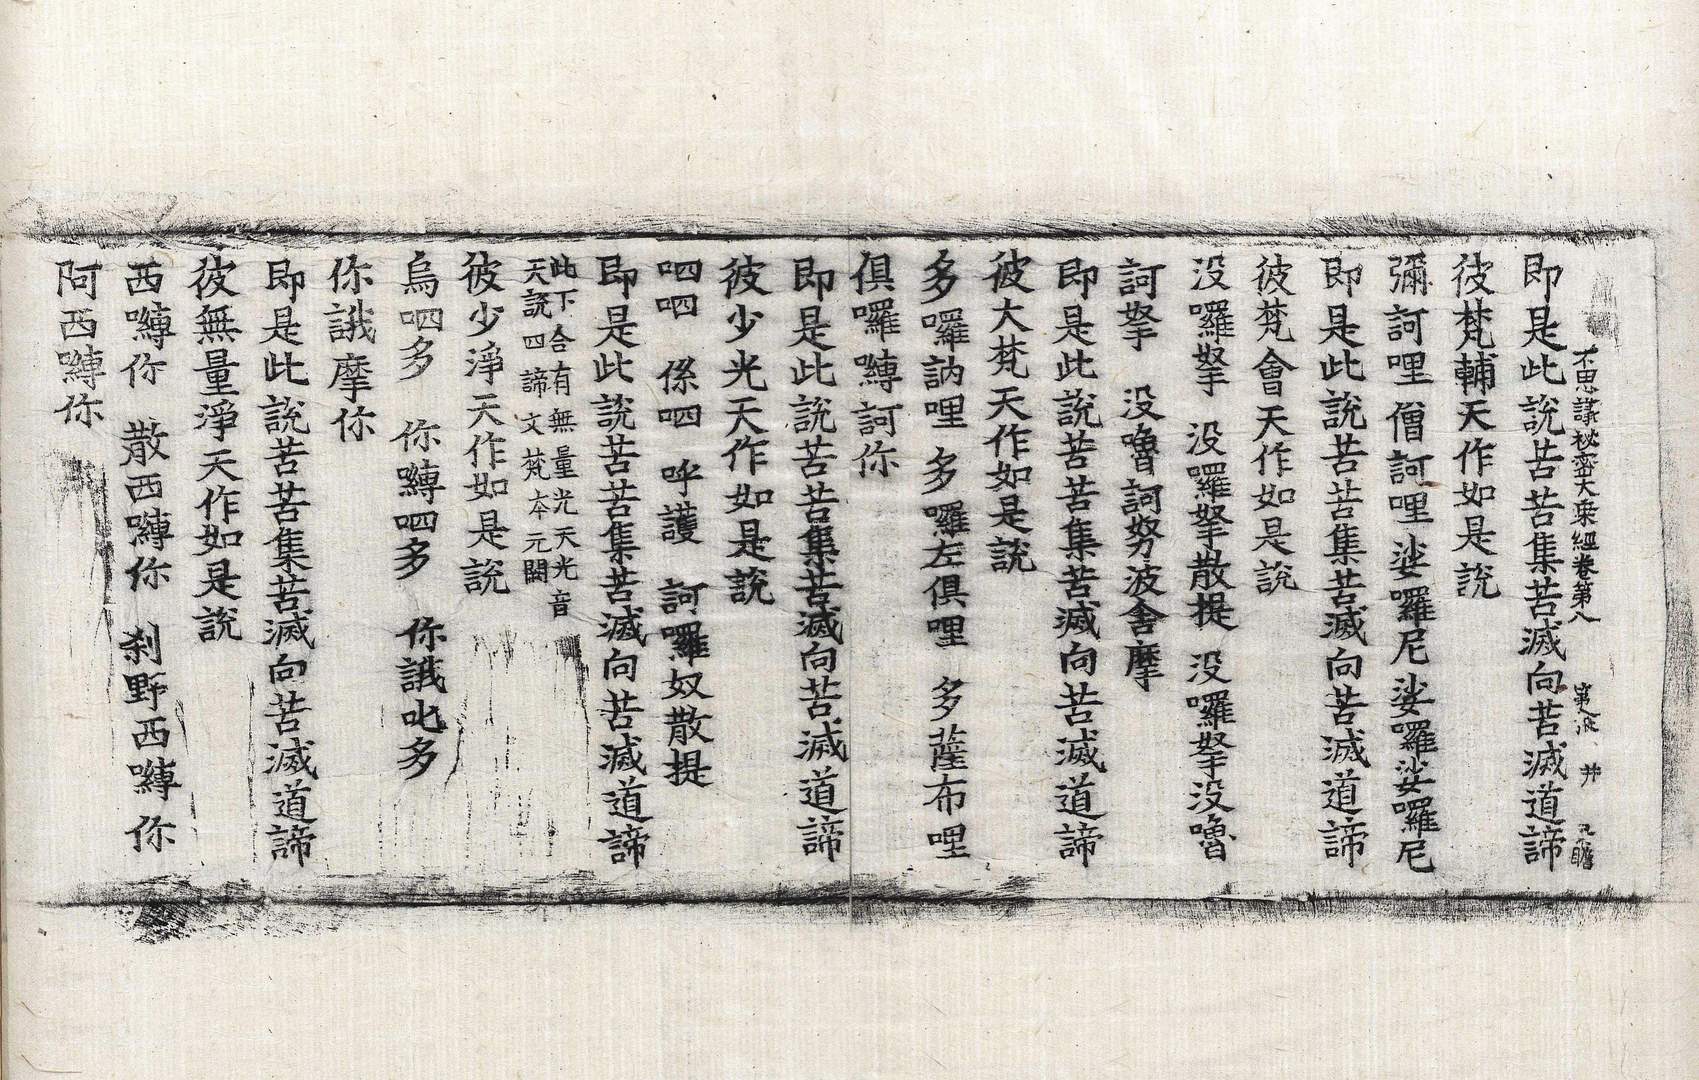 不思議秘密大乗經卷第八
即是此說苦苦集苦滅向苦滅道諦
彼梵輔天作如是說
彌訶哩僧訶哩娑囉尼娑囉娑囉尼
即是此說苦苦集苦滅向苦滅道諦
彼梵會天作如是說
没囉拏 没囉拏散提 没囉拏没嚕
訶拏 没嚕訶努波舍摩
即是此說苦苦集苦滅向苦滅道諦
彼大梵天作如是說
多囉訥哩 多囉左俱哩 多薩布哩
俱囉嚩訶你
即是此說苦苦集苦滅向苦滅道諦
彼少光天作如是說
呬呬 係呬 呼護 訶囉奴散提
即是此說苦苦集苦滅向苦滅道諦
此下合有無量光天光音
天說四諦文梵本元闕
彼少淨天作如是說
烏呬多 你嚩呬多 你誐叱多
你誐摩你
即是此說苦苦集苦滅向苦滅道諦
彼無量淨天作如是說
西嚩你 散西嚩你 刹野西嚩你
阿西嚩你